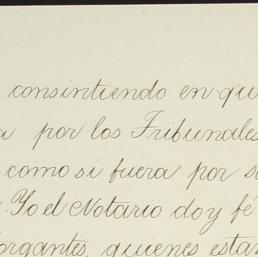 consintiendo en qu
a por los Tribunales
como si fuera por s
. Yo el Notario doy fé
organtes, quienes estan